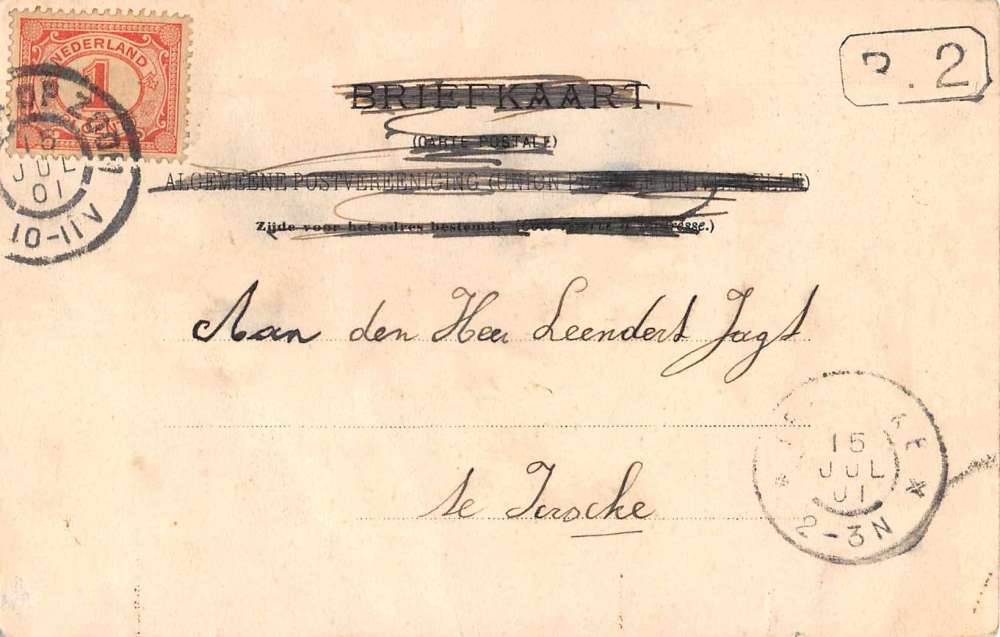 NEDERLAND
1
OP ZOOM
15
JUL
01
10-11V
2
BRIEFKAART.
(CARTE POSTALE)
ALGEMEENE POSTVEREENIGING (UNION
Zijde voor het adres bestemd.
Aan den Heer Leendert Jagt
te Ierseke
15
JUL
01
2-3N